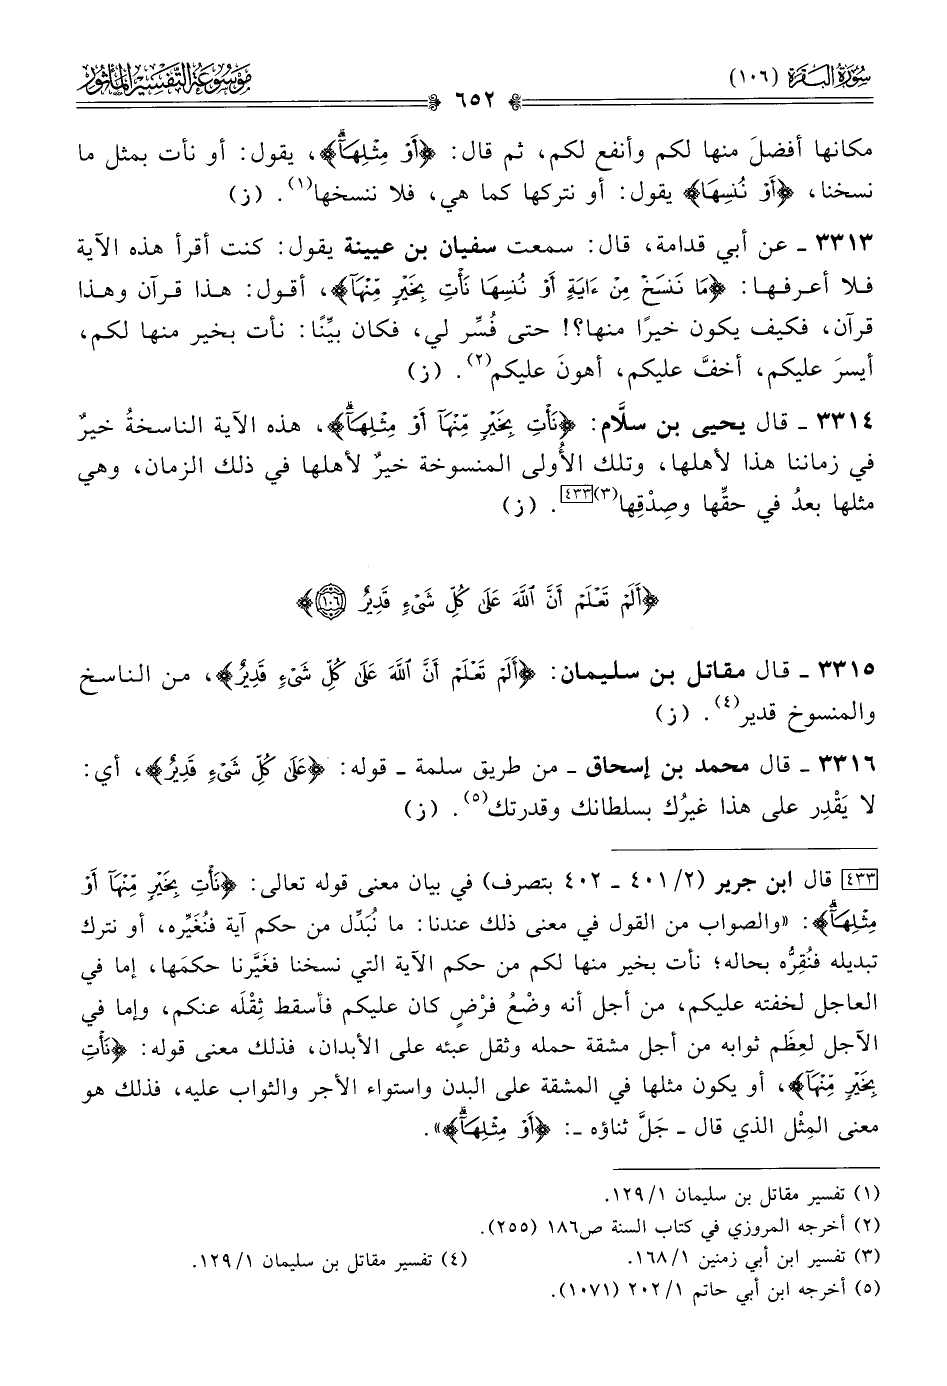 سُورَةُ البَقَرَة (١٠٦)
مَوْسُوعَة التَّفْسِير المَأْثُور
٦٥٢
مكانها أفضلَ منها لكم وأنفع لكم، ثم قال: ﴿أَوْ مِثْلِهَآۗ﴾، يقول: أو نأت بمثل ما
نسخنا، ﴿أَوْ نُنسِهَا﴾ يقول: أو نتركها كما هي، فلا ننسخها(١). (ز)
٣٣١٣ ـ عن أبي قدامة، قال: سمعت سفيان بن عيينة يقول: كنت أقرأ هذه الآية
فلا أعرفها: ﴿مَا نَنسَخْ مِنْ ءَايَةٍ أَوْ نُنسِهَا نَأْتِ بِخَيْرٍ مِّنْهَآ﴾، أقول: هذا قرآن وهذا
قرآن، فكيف يكون خيرًا منها؟! حتى فُسِّر لي، فكان بيِّنًا: نأت بخير منها لكم،
أيسرَ عليكم، أخفَّ عليكم، أهونَ عليكم(٢). (ز)
٣٣١٤ ـ قال يحيى بن سلَّام: ﴿نَأْتِ بِخَيْرٍ مِّنْهَآ أَوْ مِثْلِهَآۗ﴾، هذه الآية الناسخةُ خيرٌ
في زماننا هذا لأهلها، وتلك الأُولى المنسوخة خيرٌ لأهلها في ذلك الزمان، وهي
مثلها بعدُ في حقِّها وصِدْقِها(٣)[٤٣٣]. (ز)
﴿أَلَمْ تَعْلَمْ أَنَّ ٱللَّهَ عَلَىٰ كُلِّ شَىْءٍ قَدِيرٌ ١٠٦﴾
٣٣١٥ ـ قال مقاتل بن سليمان: ﴿أَلَمْ تَعْلَمْ أَنَّ ٱللَّهَ عَلَىٰ كُلِّ شَىْءٍ قَدِيرٌ﴾، من الناسخ
والمنسوخ قدير(٤). (ز)
٣٣١٦ ـ قال محمد بن إسحاق ـ من طريق سلمة ـ قوله: ﴿عَلَىٰ كُلِّ شَىْءٍ قَدِيرٌ﴾، أي:
لا يَقْدِر على هذا غيرُك بسلطانك وقدرتك(٥). (ز)
[٤٣٣] قال ابن جرير (٤٠١/٢ ـ ٤٠٢ بتصرف) في بيان معنى قوله تعالى: ﴿نَأْتِ بِخَيْرٍ مِّنْهَآ أَوْ
مِثْلِهَآۗ﴾: «والصواب من القول في معنى ذلك عندنا: ما نُبَدِّل من حكم آية فنُغَيِّره، أو نترك
تبديله فنُقِرُّه بحاله؛ نأت بخير منها لكم من حكم الآية التي نسخنا فغَيَّرنا حكمَها، إما في
العاجل لخفته عليكم، من أجل أنه وضْعُ فرْضٍ كان عليكم فأسقط ثِقْلَه عنكم، وإما في
الآجل لعِظَم ثوابه من أجل مشقة حمله وثقل عبئه على الأبدان، فذلك معنى قوله: ﴿نَأْتِ
بِخَيْرٍ مِّنْهَآ﴾، أو يكون مثلها في المشقة على البدن واستواء الأجر والثواب عليه، فذلك هو
معنى المِثْل الذي قال ـ جَلَّ ثناؤه ـ: ﴿أَوْ مِثْلِهَآۗ﴾».
(١) تفسير مقاتل بن سليمان ١٢٩/١.
(٢) أخرجه المروزي في كتاب السنة ص١٨٦ (٢٥٥).
(٣) تفسير ابن أبي زمنين ١٦٨/١. (٤) تفسير مقاتل بن سليمان ١٢٩/١.
(٥) أخرجه ابن أبي حاتم ٢٠٢/١ (١٠٧١).